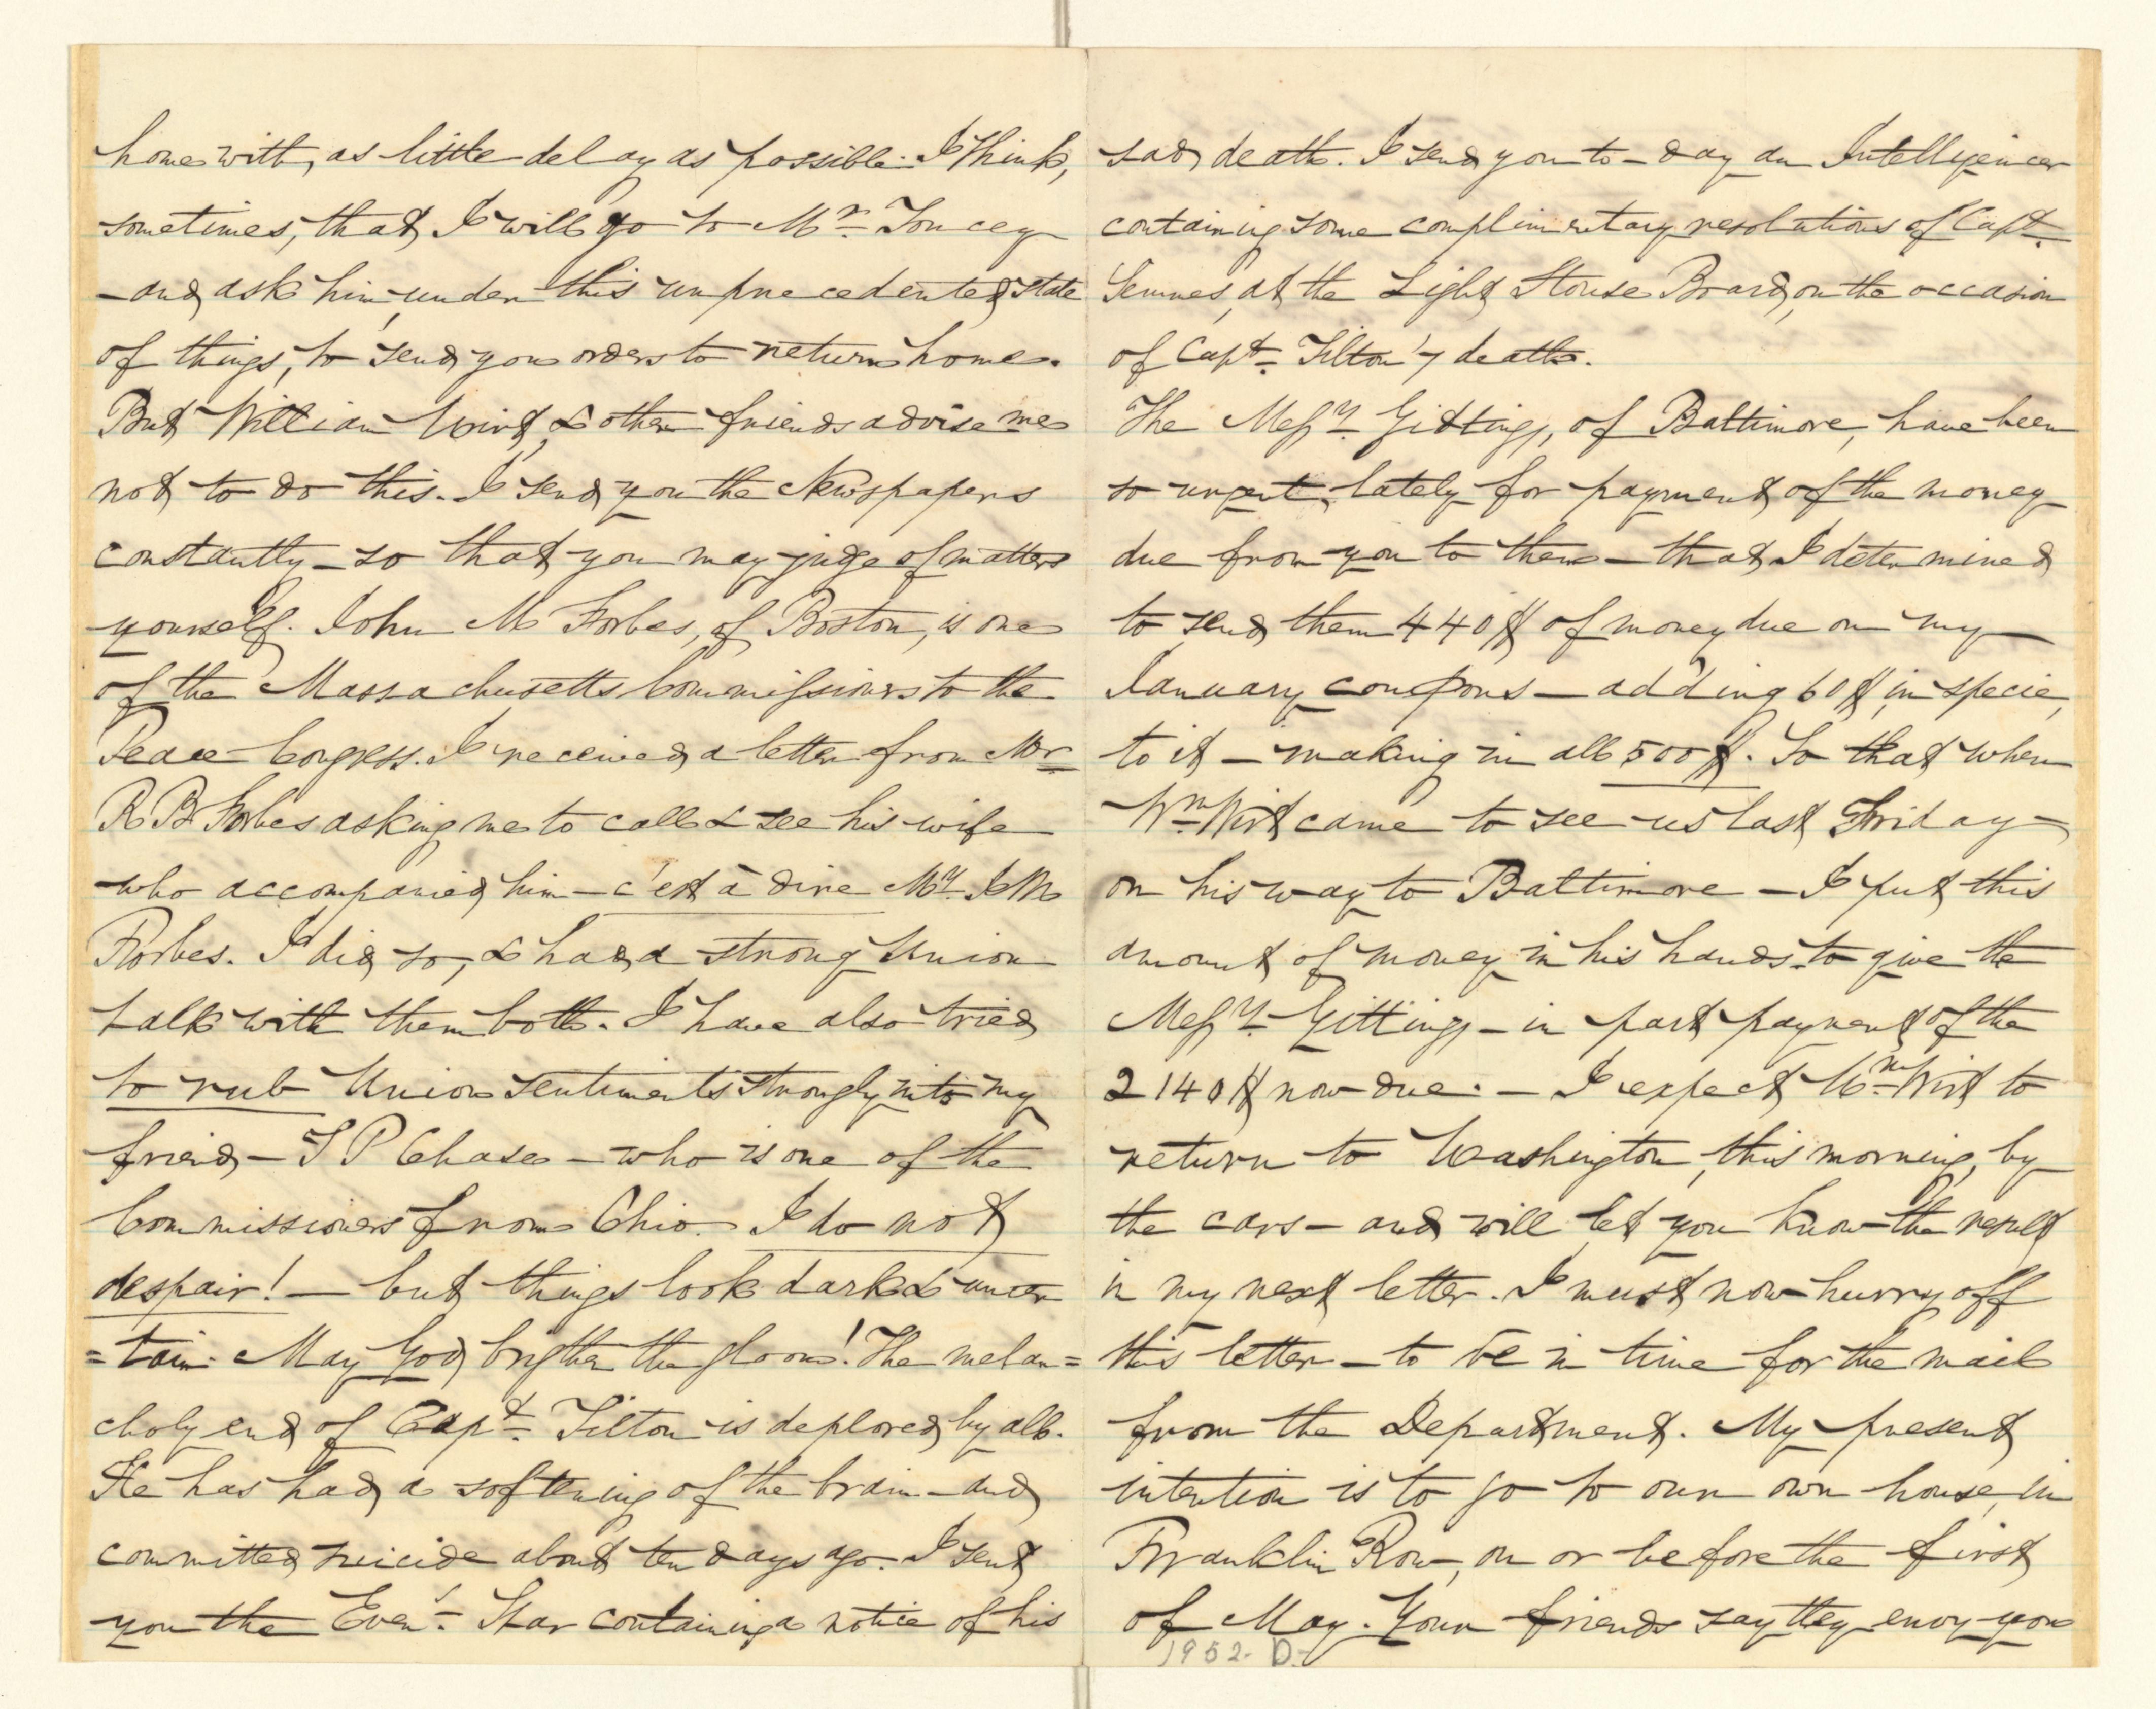 home with, as little delay as possible. I think,
sometimes, that I will go to Mr. Toucey
- and ask him, under this unprecedented state
of things, to send you orders to return home.
But William Wirt, & other friends advise me
not to do this. I send you the Newspapers
constantly - so that you may judge of matters
yourself. John M Forbes, of Boston, is one
of the Massachusetts Commissioners to the
Peace Congress. I received a letter from Mr
R B Forbes asking me to call & see his wife
who accompanied him - c'est à dire Mrs. J M
Forbes. I did so, & had a strong Union
talk with them both. I have also tried
to rub Union sentiments strongly into my
friend - S P Chase - who is one of the
Commissioners from Ohio. I do not
despair! - but things look dark & uncer
=tain. May God brigthen the gloom! The melan=
choly end of Capt. Tilton is deplored by all.
He has had a softening of the brain - and
committed suicide about ten days ago. I sent
you the Eveng. Star containing a notice of his
sad death. I send you to-day an Intelligencer
containing some complimentary resolutions of Capt.
Semmes, at the Light House Board, on the occasion
of Capt. Tilton's death.
The Messrs. Gittings, of Baltimore, have been
so urgent, lately for payment of the money
due from you to them - that I determined
to send them 440$ of money due on my
January coupons - adding 60$, in specie,
to it - making in all 500$. So that when
Wm. Wirt came to see us last Friday -
on his way to Baltimore - I put this
amount of money in his hands - to give the
Messrs. Gittings - in part payment of the
2140$ now due. - I expect Wm. Wirt to
return to Washington, this morning, by
the cars - and will let you know the result
in my next letter. I must now hurry off
this letter - to be in time for the mail
from the Department. My present
intention is to go to our own house, in
Franklin Row, on or before the first
of May. Your friends say they envy you
1952. D.